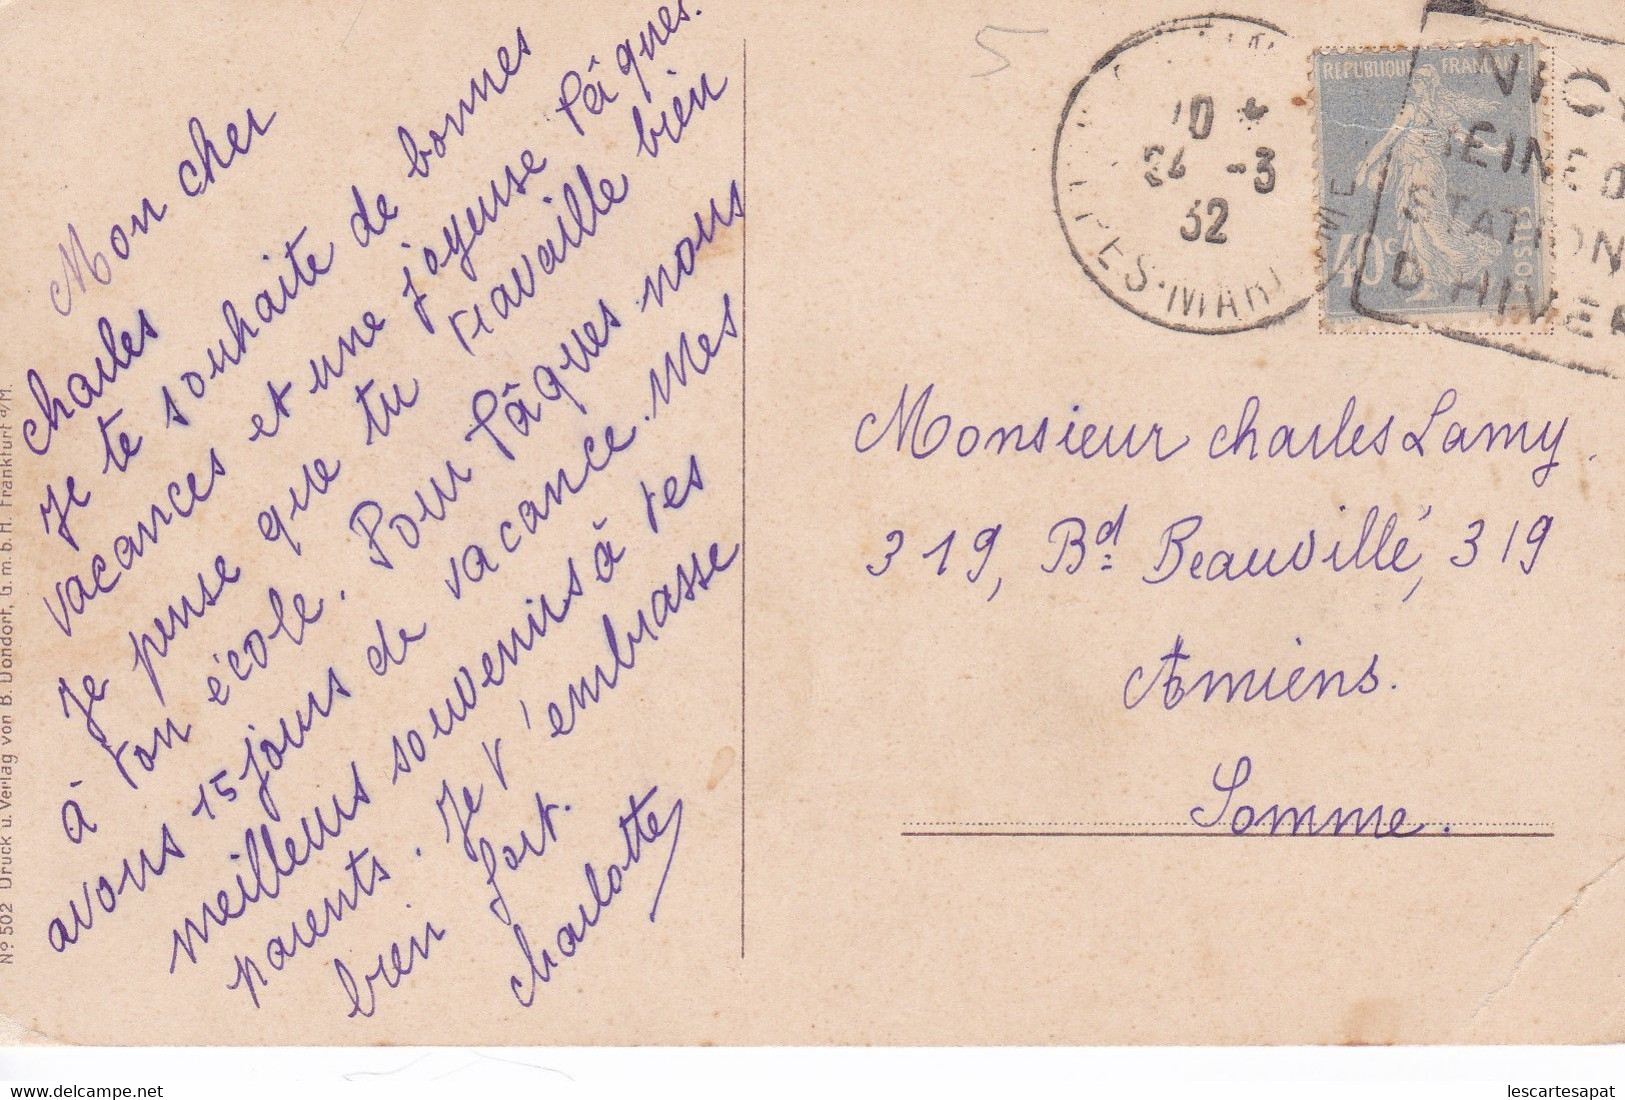 Mon cher
Charles
Je te souhaite de bonnes
vacances et une joyeuse Pâques.
Je pense que tu travaille bien
à ton école. Pour Pâques nous
avons 15 jours de vacance. Mes
meilleurs souvenirs à tes
parents. Je t'embrasse
bien fort.
Charlotte
Nº 502 Druck u. Verlag von B. Dondorf, G. m. b. H. Frankfurt a/M.
5
10
24 -3
32
ALPES-MARITIMES
REPUBLIQUE FRANCAISE
40c
POSTES
STATION
D'HIVER
Monsieur Charles Lamy.
319, Bd. Beauvillé, 319
Amiens.
Somme.
www.delcampe.net
lescartesapat